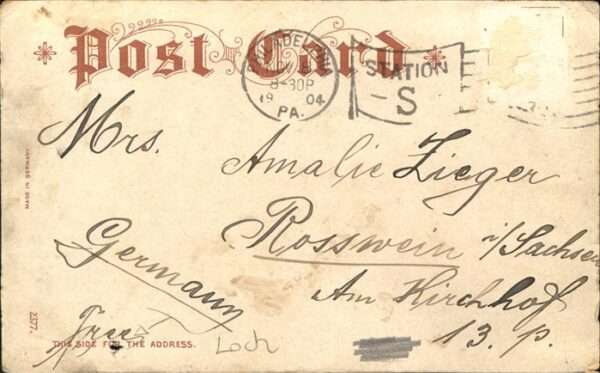 Post Card
PHILADELPHIA
8-30P
19 04
PA.
STATION
S
MADE IN GERMANY
Mrs. Amalie Zieger
Rosswein i/Sachsen
Germany
Am Kirchhof
13. p.
Free
2377.
THIS SIDE FOR THE ADDRESS.
Loch